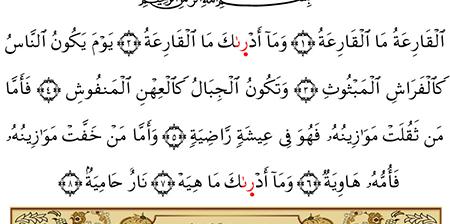 ٱلْقَارِعَةُ مَا ٱلْقَارِعَةُ ﴿١﴾ وَمَآ أَدْرَىٰكَ مَا ٱلْقَارِعَةُ ﴿٢﴾ يَوْمَ يَكُونُ ٱلنَّاسُ
كَٱلْفَرَاشِ ٱلْمَبْثُوثِ ﴿٣﴾ وَتَكُونُ ٱلْجِبَالُ كَٱلْعِهْنِ ٱلْمَنفُوشِ ﴿٤﴾ فَأَمَّا
مَن ثَقُلَتْ مَوَٰزِينُهُۥ فَهُوَ فِى عِيشَةٍ رَّاضِيَةٍ ﴿٥﴾ وَأَمَّا مَنْ خَفَّتْ مَوَٰزِينُهُۥ
فَأُمُّهُۥ هَاوِيَةٌ ﴿٦﴾ وَمَآ أَدْرَىٰكَ مَا هِيَهْ ﴿٧﴾ نَارٌ حَامِيَةٌۢ ﴿٨﴾